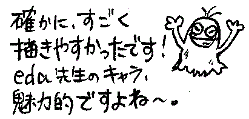 確かに、すごく
描きやすかったです!
edu先生のキャラ、
魅力的ですよね〜。